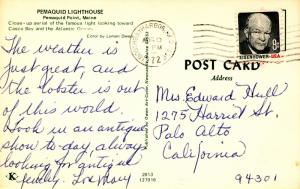 PEMAQUID LIGHTHOUSE
Pemaquid Point, Maine
Close-up aerial of the famous light looking toward
Casco Bay and the Atlantic Ocean.
Color by
The weather is
just great, and
the lobster is out
of this world.
Took in an antique
show to-day, always
looking for antique
jewelry. Love Mary
HARBOR
1972
EISENHOWER·USA
POST CARD
Address
Mrs. Edward Hull
1275 Harriet St.
Palo Alto
California
94301
K